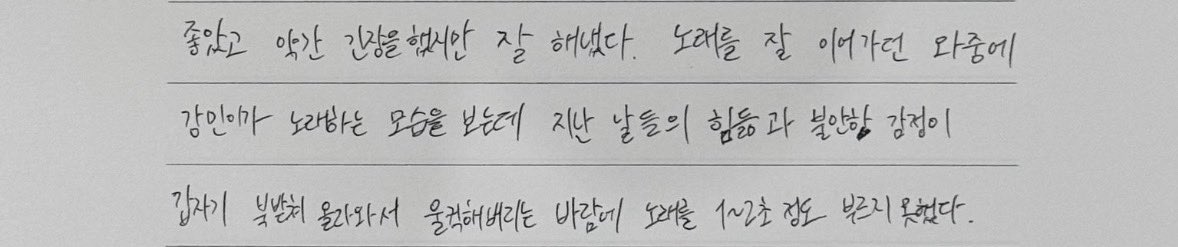 좋았고 약간 긴장을 했지만 잘 해냈다. 노래를 잘 이어가던 와중에
강민이가 노래하는 모습을 보는데 지난 날들의 힘듦과 불안함 감정이
갑자기 북받쳐 올라와서 울컥해버리는 바람에 노래를 1~2초 정도 부르지 못했다.